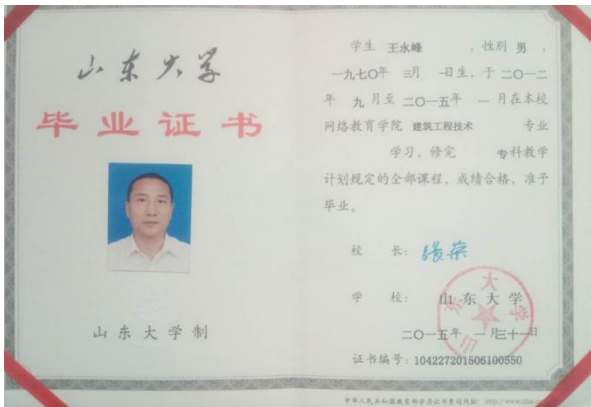 山东大学
毕业证书
山东大学制
学生 王永峰 ，性别 男 ，
一九七〇年 三月 一日生，于 二〇一二
年 九 月至 二〇一五年 一 月在本校
网络教育学院 建筑工程技术 专业
学习，修完 专科教学
计划规定的全部课程，成绩合格，准予
毕业。
校 长：
学 校： 山东大学
二〇一五年 一 月三十一日
证书编号：104227201506100550
中华人民共和国教育部学历证书查询网址：